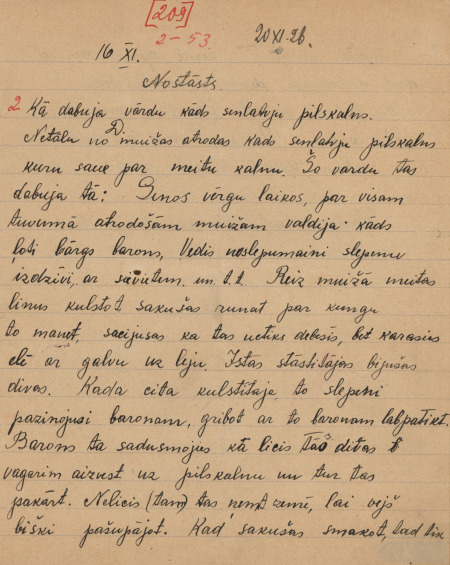 [209]
2-53.
20 XI. 26.
16 XI.
Nostāsts
2 Kā dabuja vārdu kāds senlatvju pilskalns.
Netālu no D muižas atrodas kāds senlatvju pilskalns
kuru sauc par meitu kalnu. Šo vardu tas
dabuja tā: Senos vērgu laikos, par visam
tuvumā atrodošām muižam valdija kāds
ļoti bārgs barons, Vedis noslepumaini slepenu
izdzīvi, ar sievietem un t.t. Reiz muižā meitas
linus kulstot sakušas runat par kungu
to manot, sacijusas ka tas netiks debesīs, bet karasies
ellē ar galvu uz leju. Istas stāstitājas bijušas
divas. Kada cita kulstitāja to slepeni
paziņojusi baronam, gribot ar to baronam labpatikt.
Barons ta sadusmojes kā licis tās divas
vagarim aizvest uz pilskalnu un tur tas
pakārt. Nelicis (tam) tas ņemt zemē, lai vejš
biški pašupājot. Kad sakušas smakot, tad tik